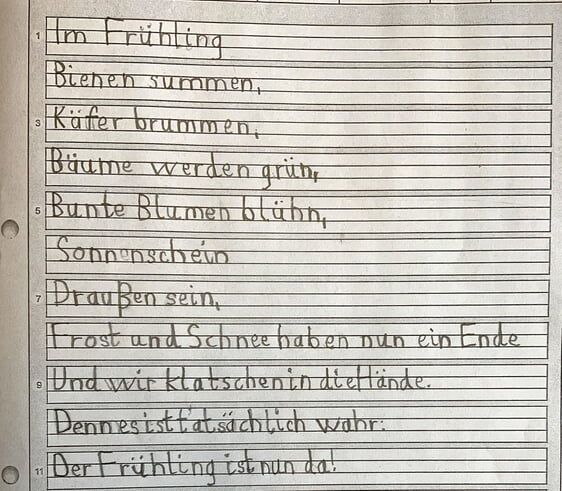 1 Im Frühling
Bienen summen,
3 Käfer brummen,
Bäume werden grün,
5 Bunte Blumen blühn,
Sonnenschein
7 Draußen sein,
Frost und Schnee haben nun ein Ende
9 Und wir klatschen in die Hände.
Denn es ist tatsächlich wahr:
11 Der Frühling ist nun da!